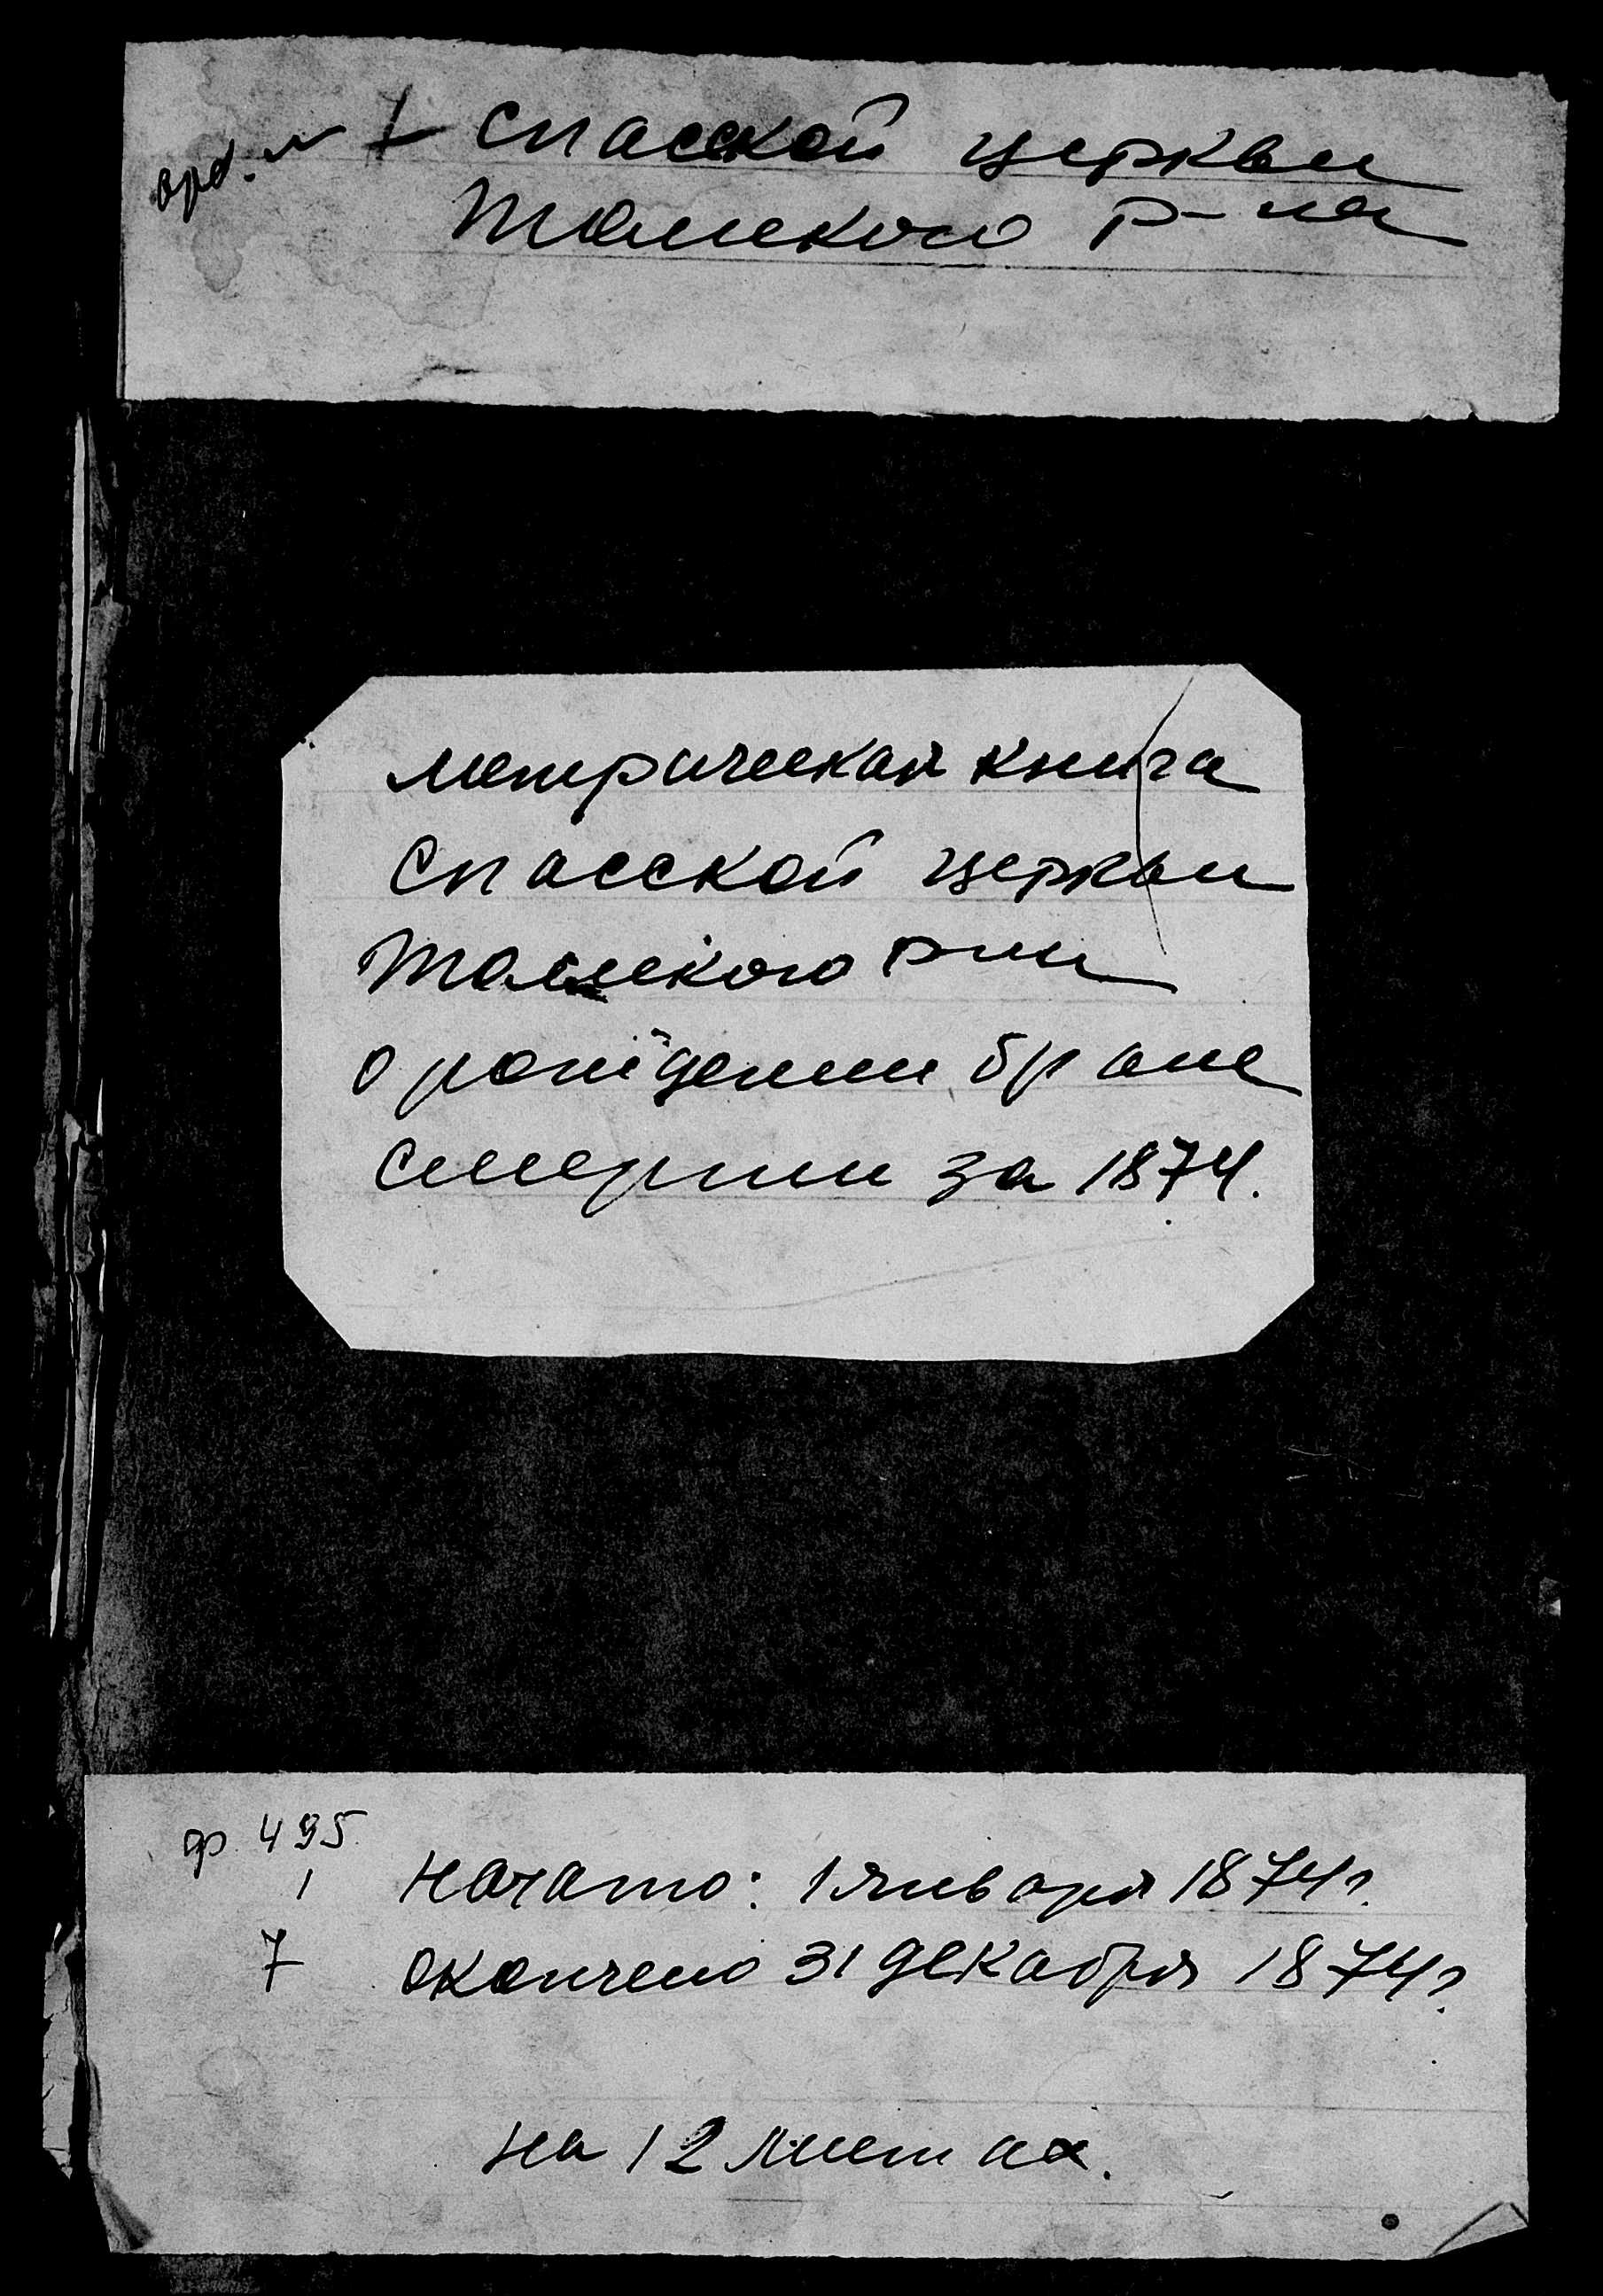 Спасской церкви
Томского р-на
метрическая книга
Спасской церкви
Томского р-на
о рождении браке
смерти за 1874.
ф 495
1 Начато: 1 января 1874 г.
7 окончено 31 декабря 1874 г.
на 12 листах.